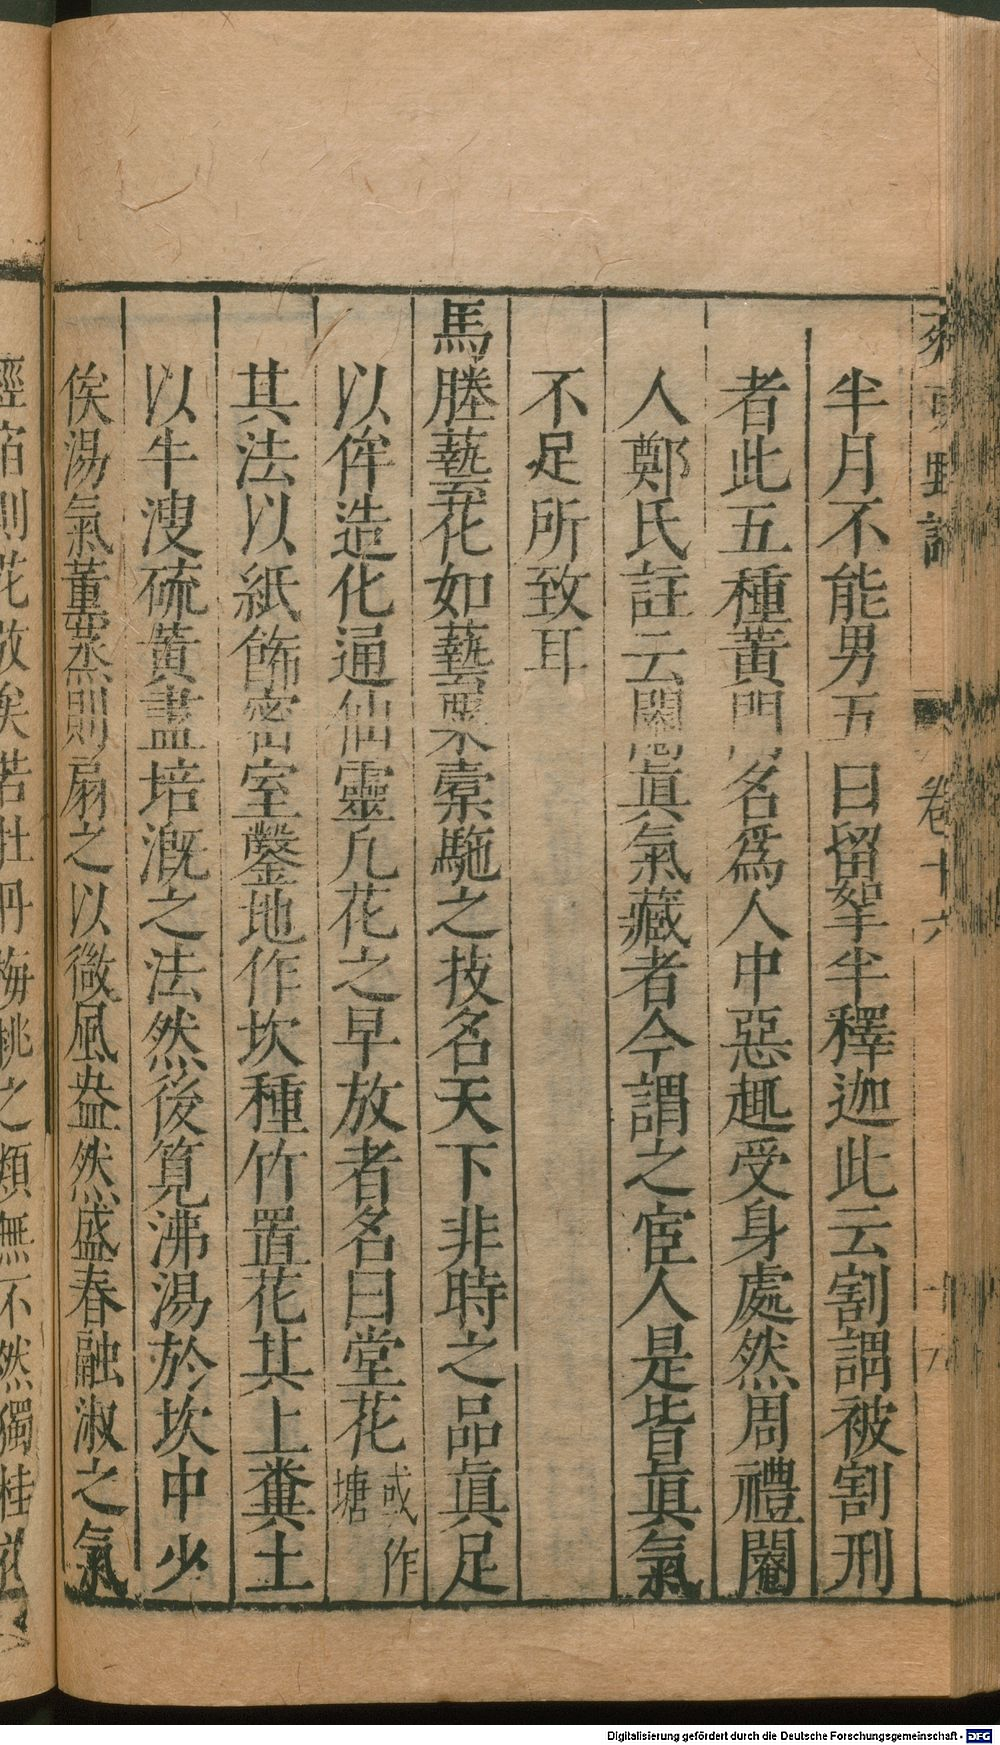 半月不能男五曰留拏半釋迦此云割謂被割刑
者此五種黃門名爲人中惡趣受身處然周禮閹
人鄭氏註云閹眞氣藏者今謂之宦人是皆眞氣
不足所致耳
馬塍藝花如藝粟橐駞之技名天下非時之品眞足
以侔造化通仙靈凡花之早放者名曰堂花或作塘
其法以紙飾密室鑿地作坎緶竹置花其上糞土
以牛溲硫黃盡培溉之法然後筧沸湯於坎中少
俟湯氣薰蒸則扇之以微風盎然盛春融淑之氣
經宿則花放矣若牡丹梅桃之類無不然獨桂
卷十六
Digitalisierung gefördert durch die Deutsche Forschungsgemeinschaft - DFG